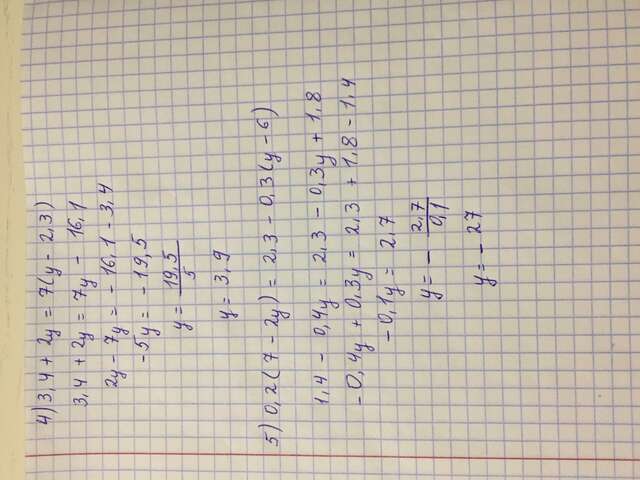 4) 3,4 + 2y = 7(y - 2,3)
3,4 + 2y = 7y - 16,1
2y - 7y = - 16,1 - 3,4
-5y = -19,5
y = 19,5/5
y = 3,9
5) 0,2(7 - 2y) = 2,3 - 0,3(y - 6)
1,4 - 0,4y = 2,3 - 0,3y + 1,8
-0,4y + 0,3y = 2,3 + 1,8 - 1,4
-0,1y = 2,7
y = - 2,7/0,1
y = - 27